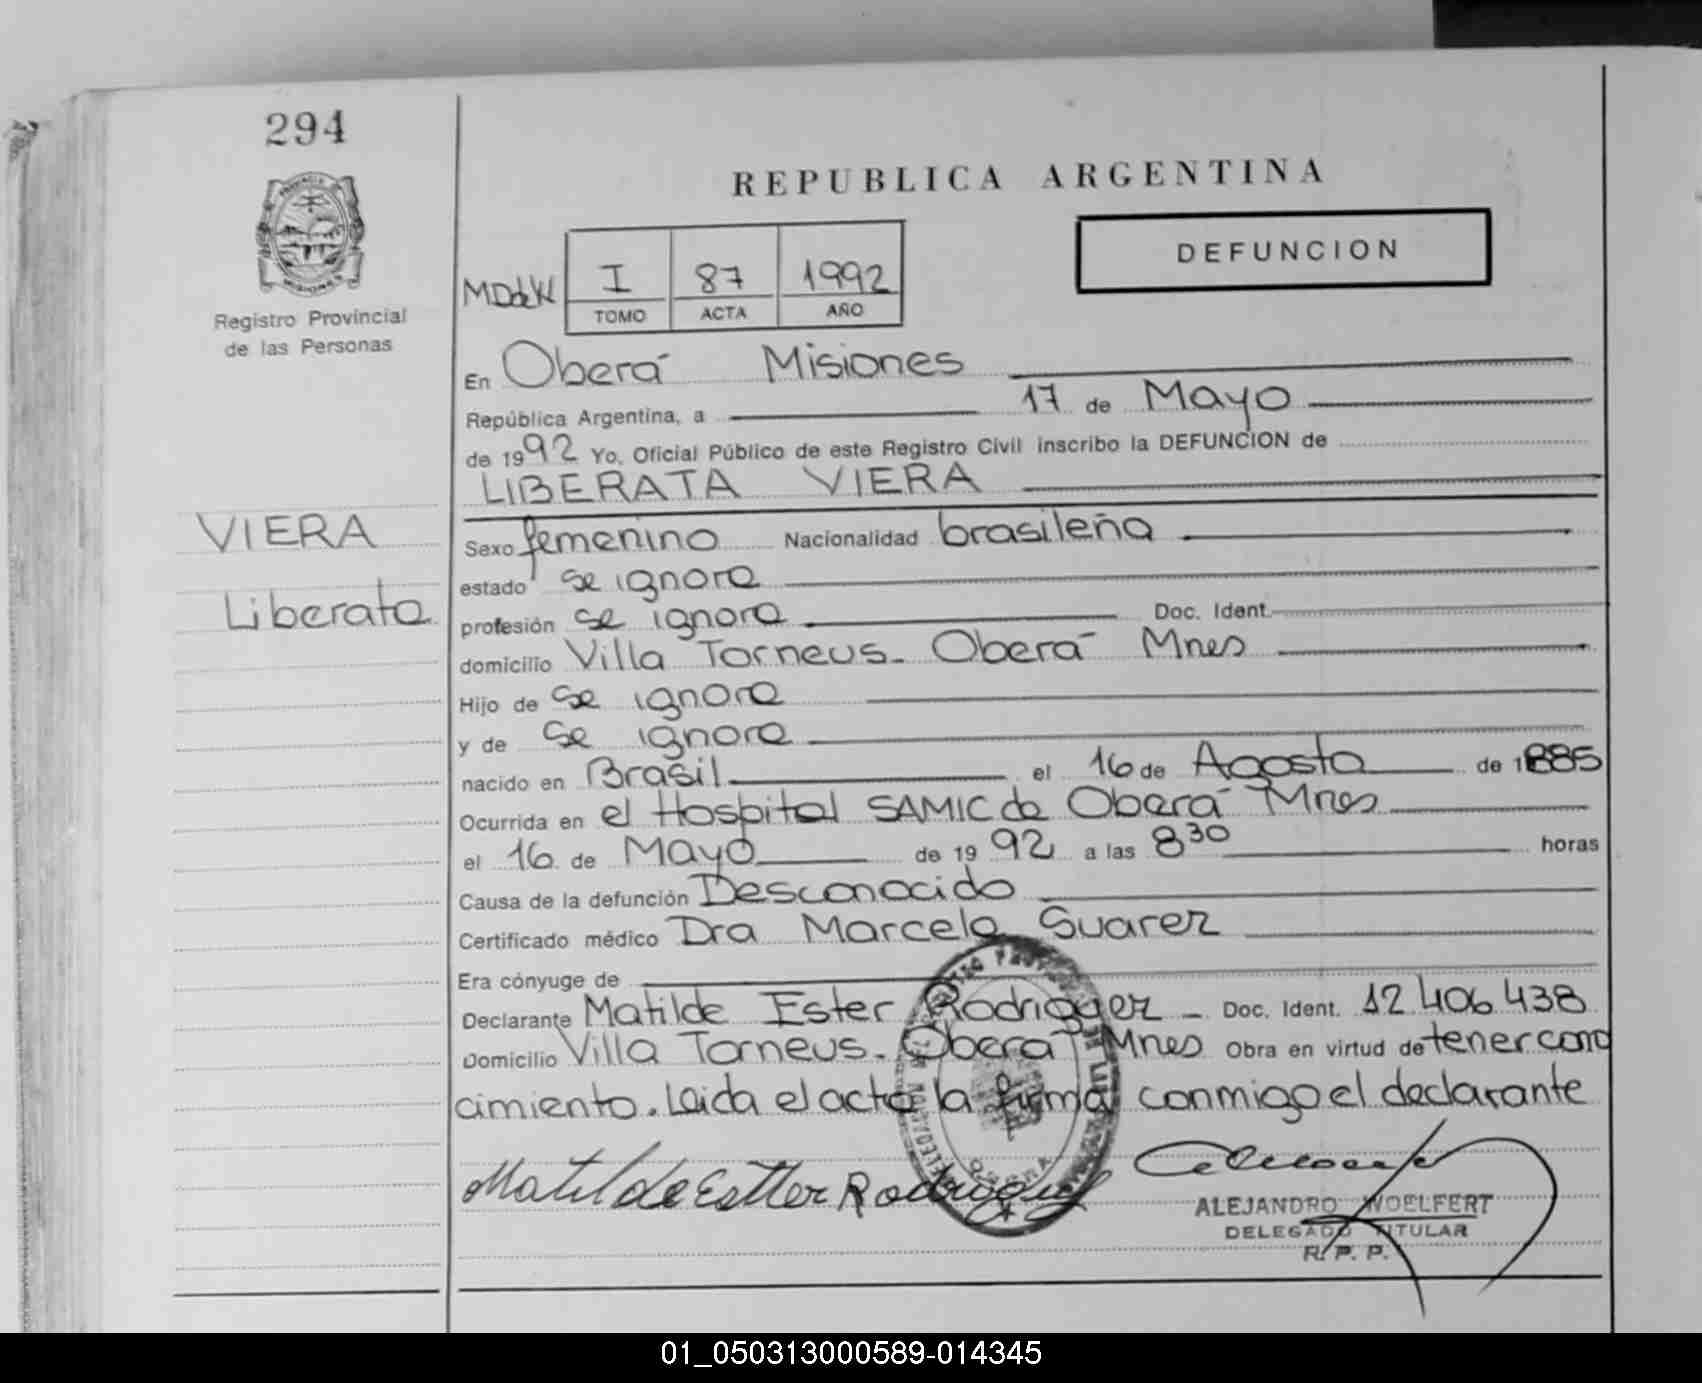 294
PROVINCIA
MISIONES
Registro Provincial
de las Personas
VIERA
Liberata
REPUBLICA ARGENTINA
DEFUNCION
MDdeW I 87 1992
TOMO ACTA AÑO
En Oberá Misiones
República Argentina, a 17 de Mayo
de 1992 Yo, Oficial Público de este Registro Civil inscribo la DEFUNCION de
LIBERATA VIERA
Sexo femenino Nacionalidad brasileña
estado se ignora
profesión se ignora Doc. Ident.
domicilio Villa Torneus - Oberá Mnes
Hijo de se ignora
y de se ignora
nacido en Brasil el 16 de Agosto de 1885
Ocurrida en el Hospital SAMIC de Oberá Mnes
el 16 de Mayo de 1992 a las 8 30 horas
Causa de la defunción Desconocido
Certificado médico Dra Marcela Suarez
Era cónyuge de
Declarante Matilde Ester Rodriguez - Doc. Ident. 12 406 438
Domicilio Villa Torneus - Oberá Mnes Obra en virtud de tener cono
cimiento. Leida el acta la firma conmigo el declarante
Matilde Esther Rodriguez
ALEJANDRO WOELFERT
DELEGADO TITULAR
R. P. P.
01_050313000589-014345